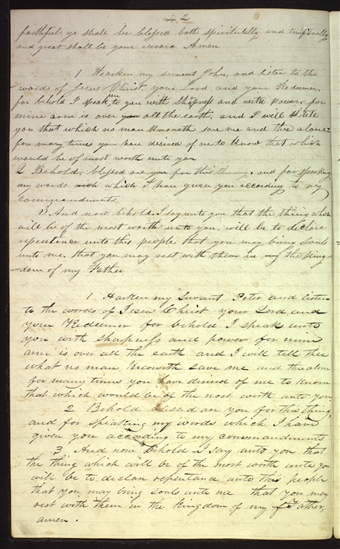 42
faithful ye shall be blessed both spiritually and temporally
and great shall be your reward Amen
1 Hearken my servant John and listen to the
words of Jesus Christ your Lord and your Redeemer
for behold I speak unto you with sharpness and with power for
mine arm is over all the earth, and I will tell
you that which no man knoweth save me and thee alone
for many times you have desired of me to know that which
would be of most worth unto you
2 Behold, blessed are you for this thing, and for speaking
my words which I have given you according to my
commandments,
3 And now behold I say unto you that the thing which
will be of the most worth unto you, will be to declare
repentance unto this people that you may bring souls
unto me, that you may rest with them in my the king
-dom of my Father
1 Harken my Servant Peter and listen
to the words of Jesus Christ your Lord and
your Redeemer for behold I speak unto
you with sharpness and power for mine
arm is over all the earth and I will tell thee
what no man knoweth save me and thee alone
for many times you have desired of me to know
that which would be of the most worth unto you
2 Behold blessed are you for this thing
and for speaking my words which I have
given you according to my commandments
3 And now behold I say unto you that
the thing which will be of the most worth unto you
will be to declare repentance unto this people
that you may bring souls unto me that you may
rest with them in the Kingdom of my Father
amen.